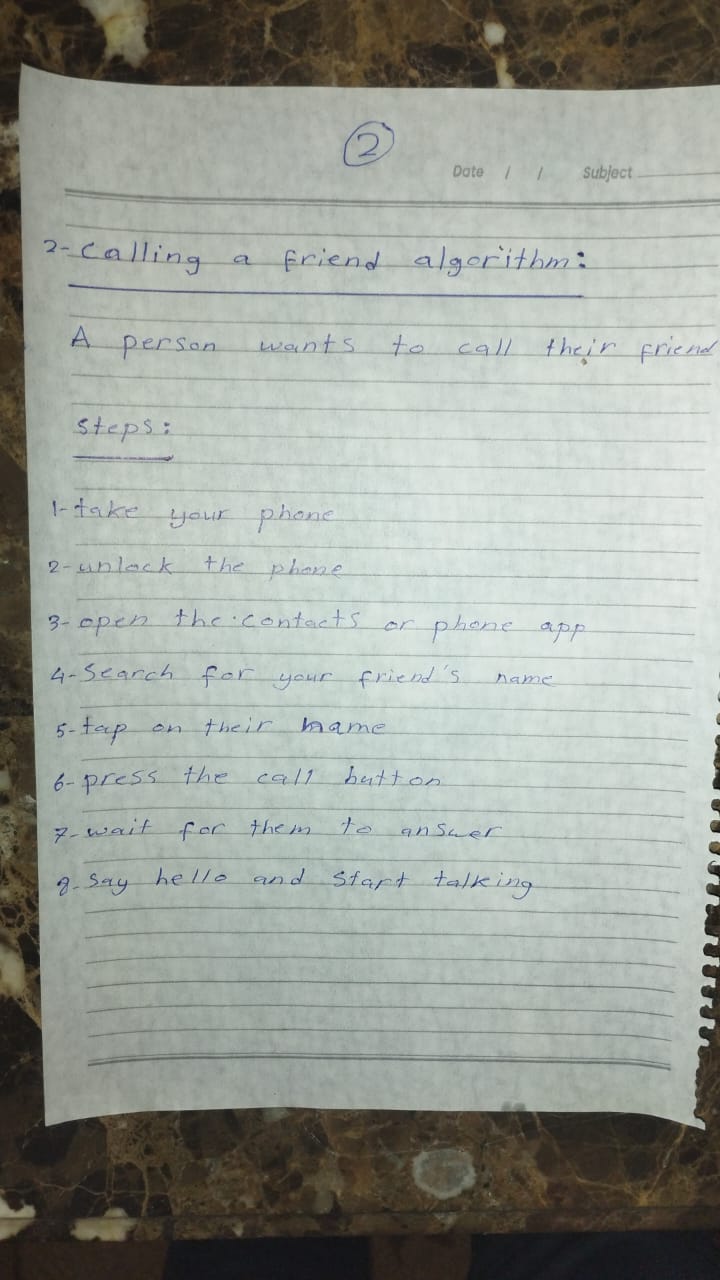 2
Date / / Subject
2- Calling a friend algorithm:
A person wants to call their friend
Steps:
1- take your phone
2- unlock the phone
3- open the contacts or phone app
4- Search for your friend's name
5- tap on their name
6- press the call button
7- wait for them to answer
8- Say hello and start talking